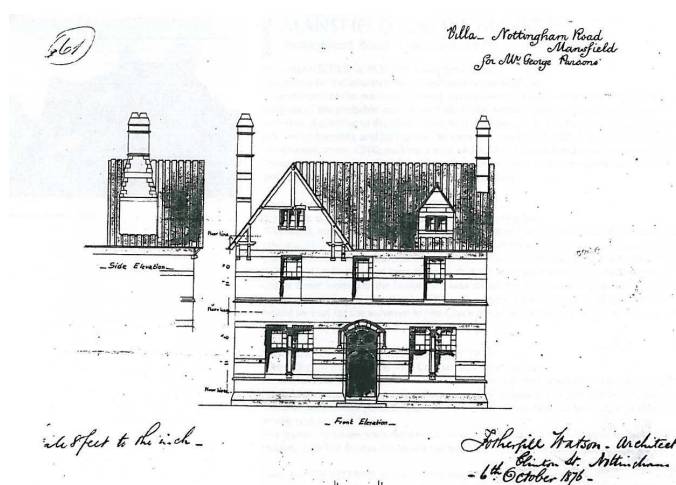 661
Villa - Nottingham Road
Mansfield
for Mr. George Parsons
Floor line
_ Side Elevation _
Floor line
Floor line
_ Front Elevation _
8 feet to the inch _
Fothergill Watson - Architect
Clinton St. Nottingham
- 6th October 1876 -